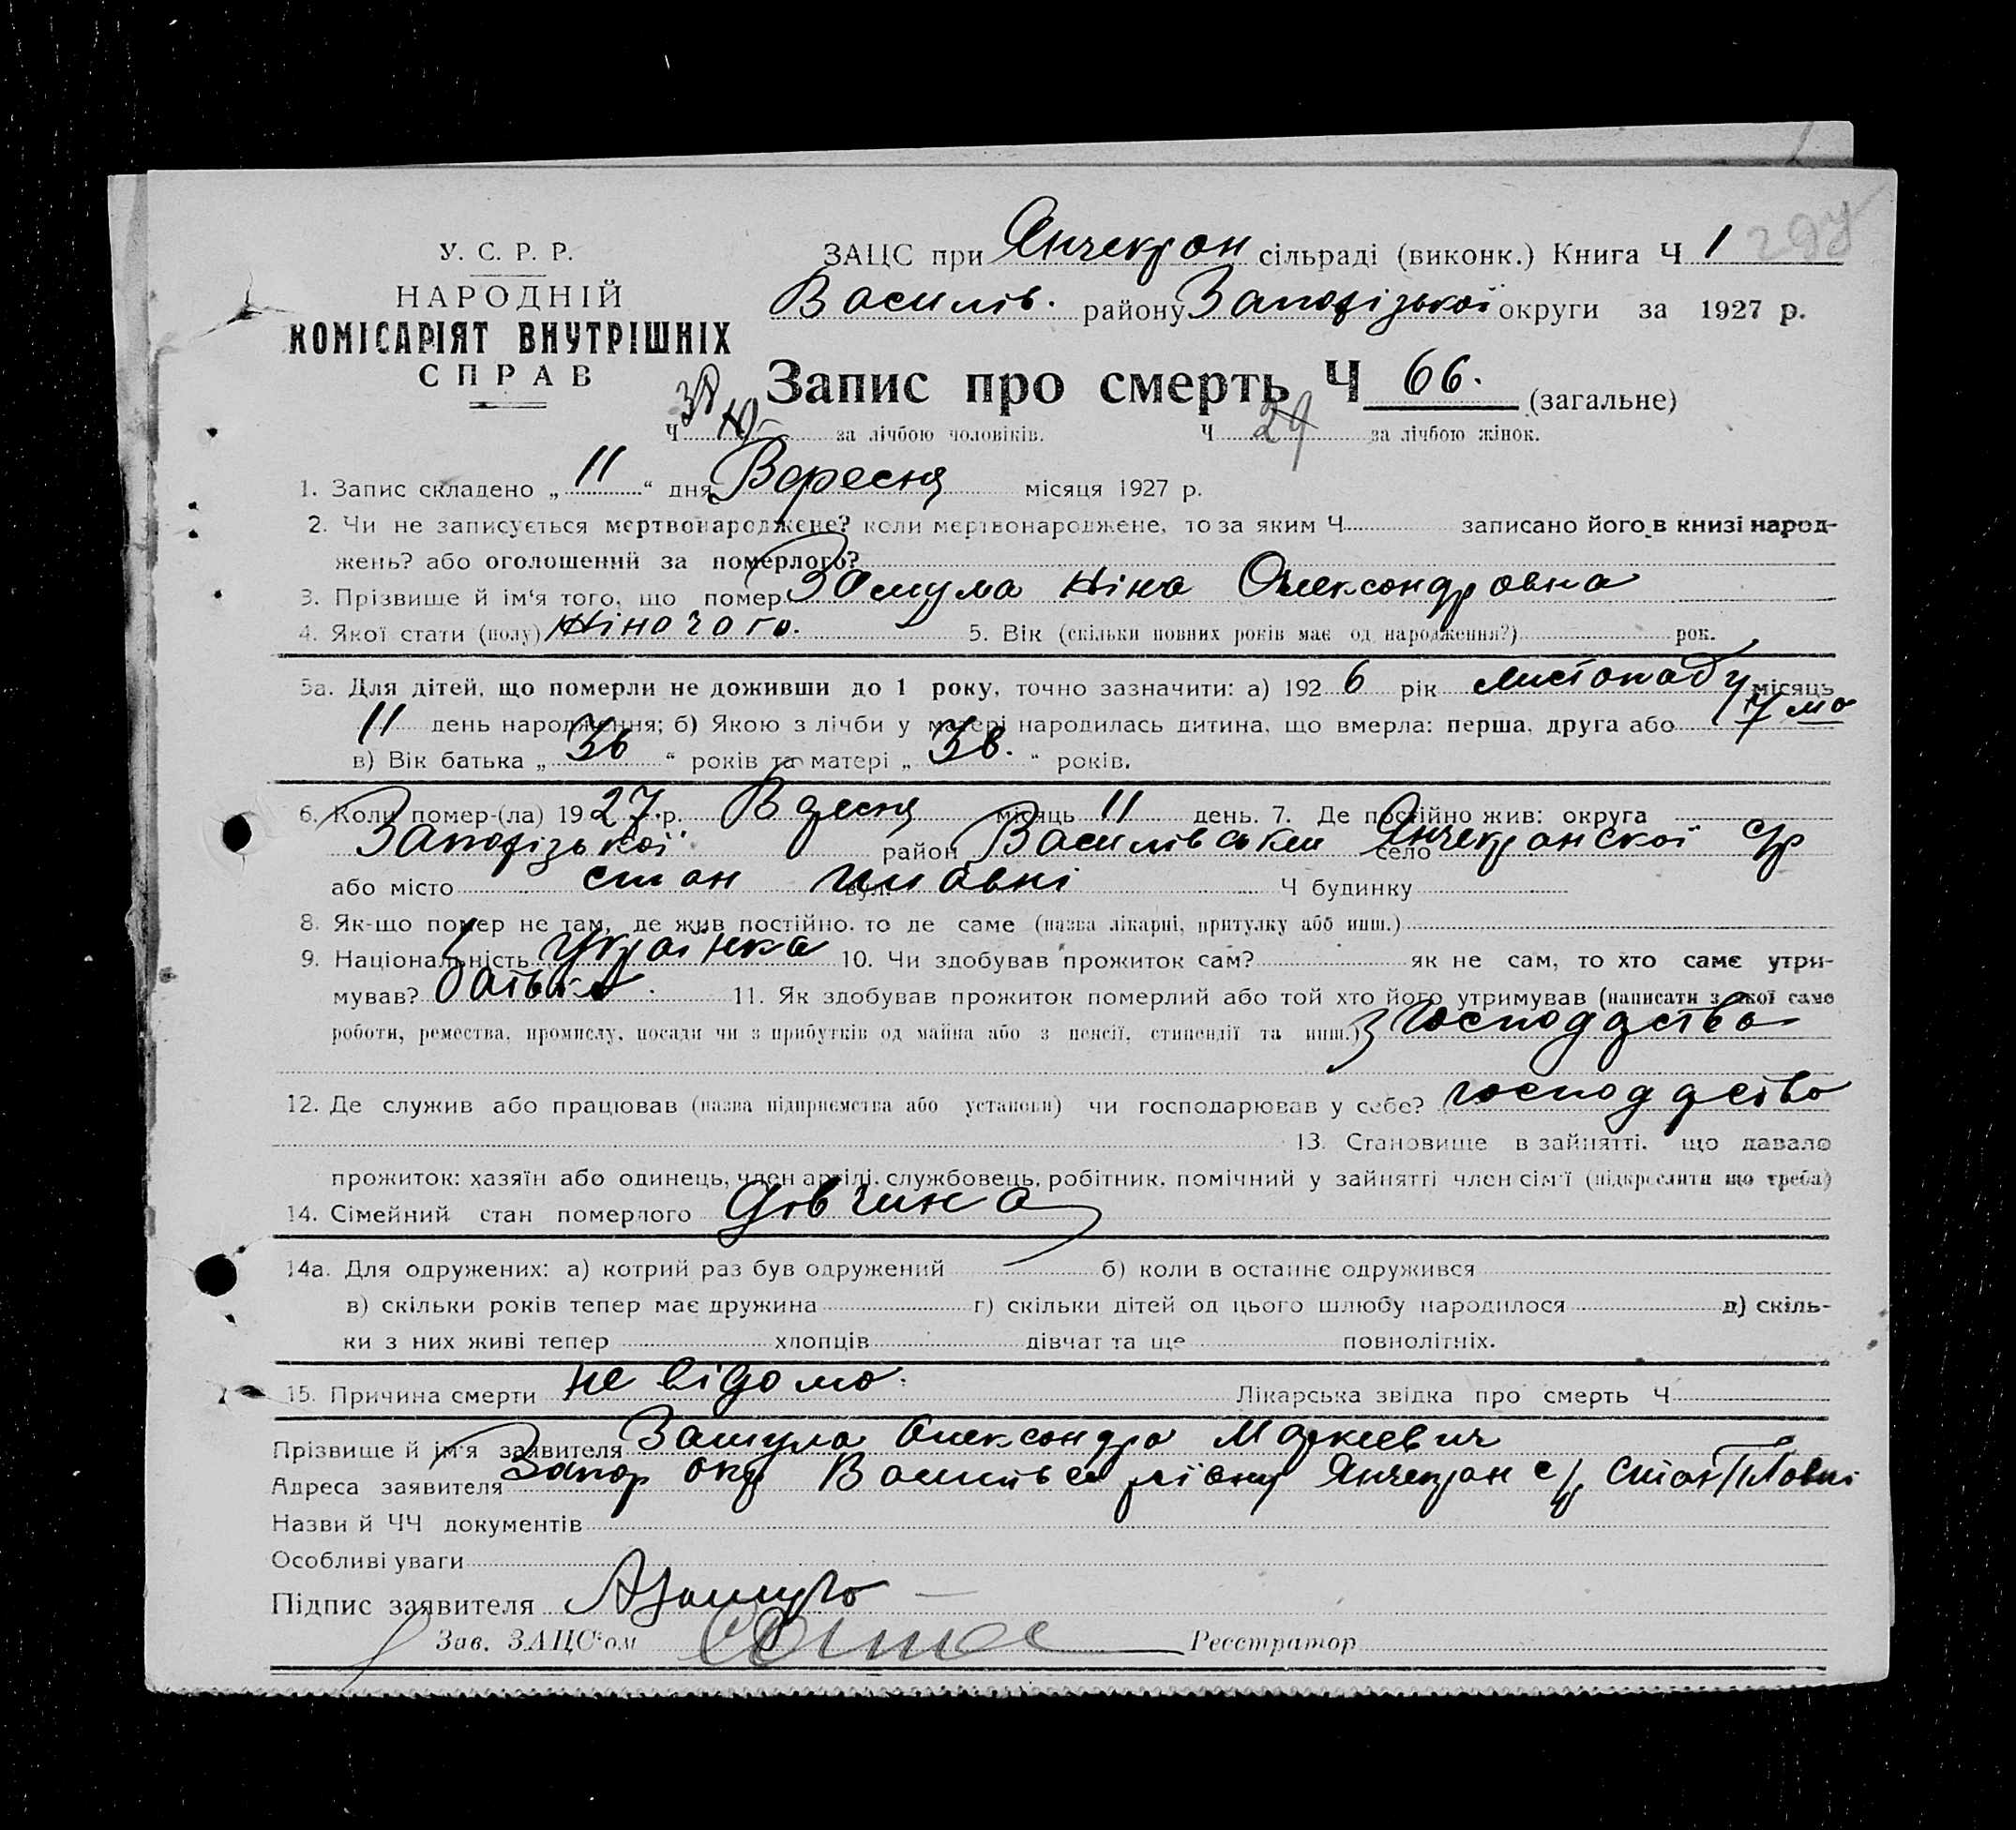 У. С. Р. Р.
НАРОДНІЙ
КОМІСАРІЯТ ВНУТРІШНІХ
СПРАВ
ЗАЦС при Янчекран сільраді (виконк.) Книга Ч 1
Василів. району Запорізької округи за 1927 р.
Запис про смерть Ч 66. (загальне)
Ч за лічбою чоловіків. Ч 29 за лічбою жінок.
1. Запис складено „ 11 “ дня Вересня місяця 1927 р.
2. Чи не записується мертвонароджене? коли мертвонароджене, то за яким Ч записано його в книзі народ-
жень? або оголошений за померлого?
3. Прізвище й ім'я того, що помер Зашула Ніна Олександровна
4. Якої стати (полу) жіночого. 5. Вік (скільки повних років має од народження?) рок.
5а. Для дітей, що померли не доживши до 1 року, точно зазначити: а) 192 6 рік листопаду місяць
11 день народження; б) Якою з лічби у матері народилась дитина, що вмерла: перша, друга або 7ма
в) Вік батька „ 36 “ років та матері „ 38. “ років.
6. Коли помер-(ла) 19 27 р. Вресня місяць 11 день. 7. Де постійно жив: округа
Запорізької район Василівськ село Янчекранської с/р
або місто стан Плавні вул. Ч будинку
8. Як-що помер не там, де жив постійно, то де саме (назва лікарні, притулку або инш.)
9. Національність Українка 10. Чи здобував прожиток сам? як не сам, то хто саме утри-
мував? батько. 11. Як здобував прожиток померлий або той хто його утримував (написати з якої саме
роботи, ремества, промислу, посади чи з прибутків од майна або з пенсії, стипендії та инш.) з господрства
12. Де служив або працював (назва підприємства або установи) чи господарював у себе? господрство
13. Становище в зайнятті, що давало
прожиток: хазяїн або одинець, член артілі, службовець, робітник, помічний у зайнятті член сім'ї (підкреслити що треба)
14. Сімейний стан померлого дівчина
14а. Для одружених: а) котрий раз був одружений б) коли в останнє одружився
в) скільки років тепер має дружина г) скільки дітей од цього шлюбу народилося д) скіль-
ки з них живі тепер хлопців дівчат та ще повнолітніх.
15. Причина смерти не відомо. Лікарська звідка про смерть Ч
Прізвище й ім'я заявителя Зашула Олександра Маркеевич
Адреса заявителя Запор окр Василівс району Янчекран с/р стан Плавні
Назви й ЧЧ документів
Особливі уваги
Підпис заявителя АЗашуло
Зав. ЗАЦС'ом Реєстратор